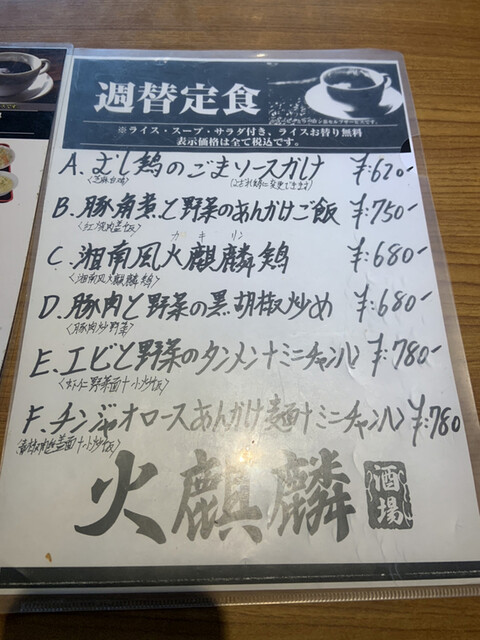 週替定食
※ライス・スープ・サラダ付き、ライスお替り無料
表示価格は全て税込です。
A. むし鶏のごまソースかけ ¥:620-
B. 豚角煮と野菜のあんかけご飯 ¥:750-
カキリン
C. 湘南風火麒麟鶏 ¥:680-
<湘南風火麒麟鶏>
D. 豚肉と野菜の黒胡椒炒め ¥:680-
<豚肉炒野菜>
E. エビと野菜のタンメン+ミニチャハン ¥:780-
<虾仁野菜面+小炒饭>
F. チンジャオロースあんかけ麺+ミニチャハン ¥:780
火麒麟
酒場